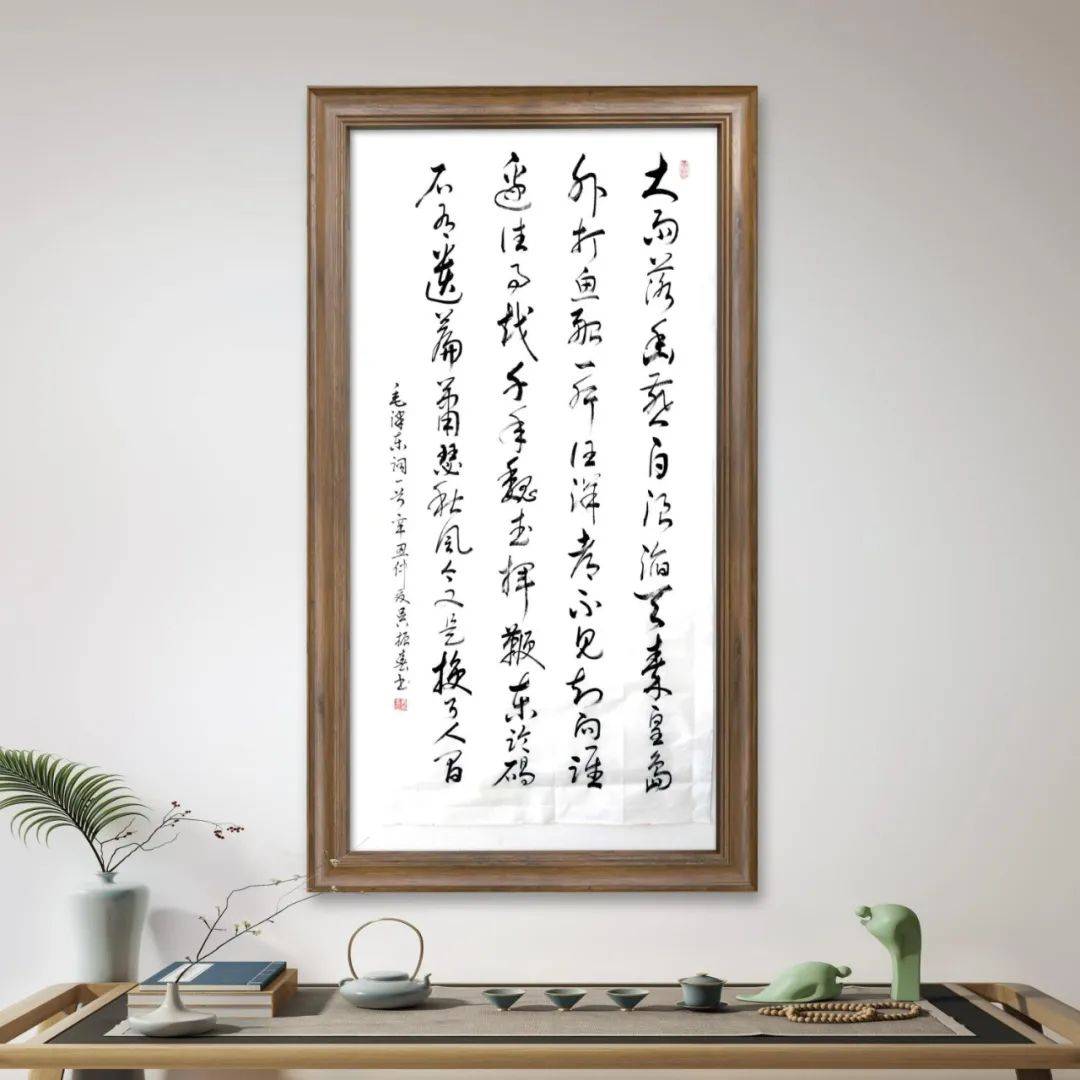 大雨落幽燕白浪滔天秦皇岛
外打鱼船一片汪洋都不见知向谁
边往事越千年魏武挥鞭东临碣
石有遗篇萧瑟秋风今又是换了人间
毛泽东词一首辛丑仲夏吴振书